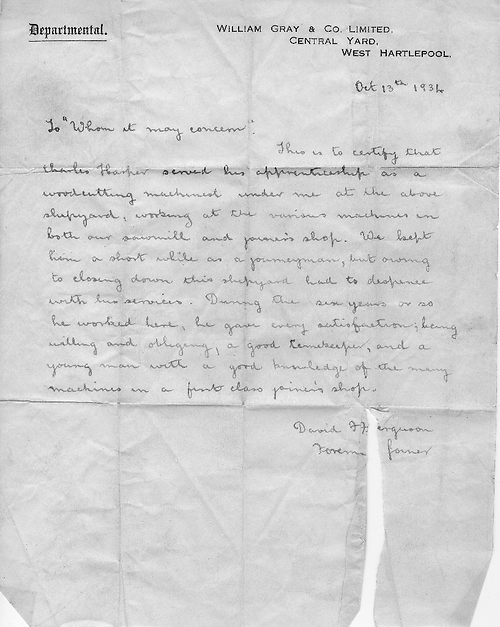 Departmental.
WILLIAM GRAY & CO. LIMITED.
CENTRAL YARD,
WEST HARTLEPOOL.
Oct 13th 1934
To "Whom it may concern".
This is to certify that
Charles Harper served his apprenticeship as a
woodcutting machinest under me at the above
shipyard, working at the various machines in
both our sawmill and joiner's shop. We kept
him a short while as a journeyman, but owing
to closing down this shipyard had to dispence
with his services. During the six years or so
he worked here, he gave every satisfaction; being
willing and obliging, a good timekeeper, and a
young man with a good knowledge of the many
machines in a first class joiner's shop.
David Ferguson
Foreman Joiner